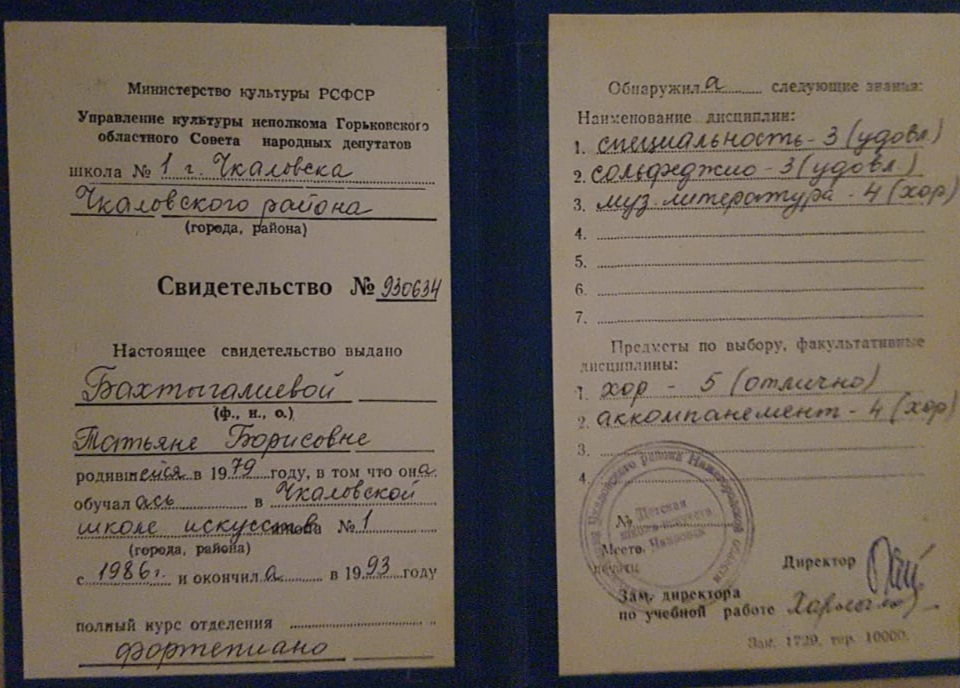 Министерство культуры РСФСР
Управление культуры исполкома Горьковского
областного Совета народных депутатов
школа № 1 г. Чкаловска
Чкаловского района
(города, района)
Свидетельство № 930634
Настоящее свидетельство выдано
Бахтыгалиевой
(ф., и., о.)
Татьяне Борисовне
родившейся в 1979 году, в том что она
обучалась в Чкаловской
школе искусств № 1
(города, района)
с 1986г. и окончила в 1993 году
полный курс отделения
фортепиано
Обнаружила следующие знания:
Наименование дисциплин:
1. специальность - 3 (удовл)
2. сольфеджио - 3 (удовл)
3. муз. литература - 4 (хор)
4.
5.
6.
7.
Предметы по выбору, факультативные
дисциплины:
1. хор - 5 (отлично)
2. аккомпанемент - 4 (хор)
3.
4.
Чкаловского района Нижегородской области
Детская
школа искусств
Чкаловск
№
Место
печати
Директор
Зам. директора
по учебной работе
Зак. 1729, тир. 10000.